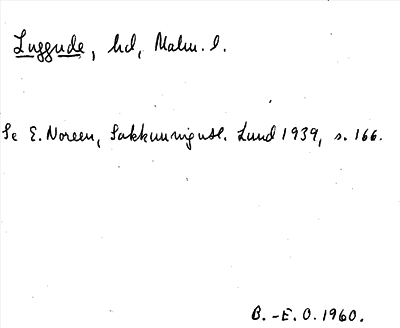 Luggude, hd, Malm. l.
Se E. Noreen, Sakkunnigutl. Lund 1939, s. 166.
B.-E. O. 1960.